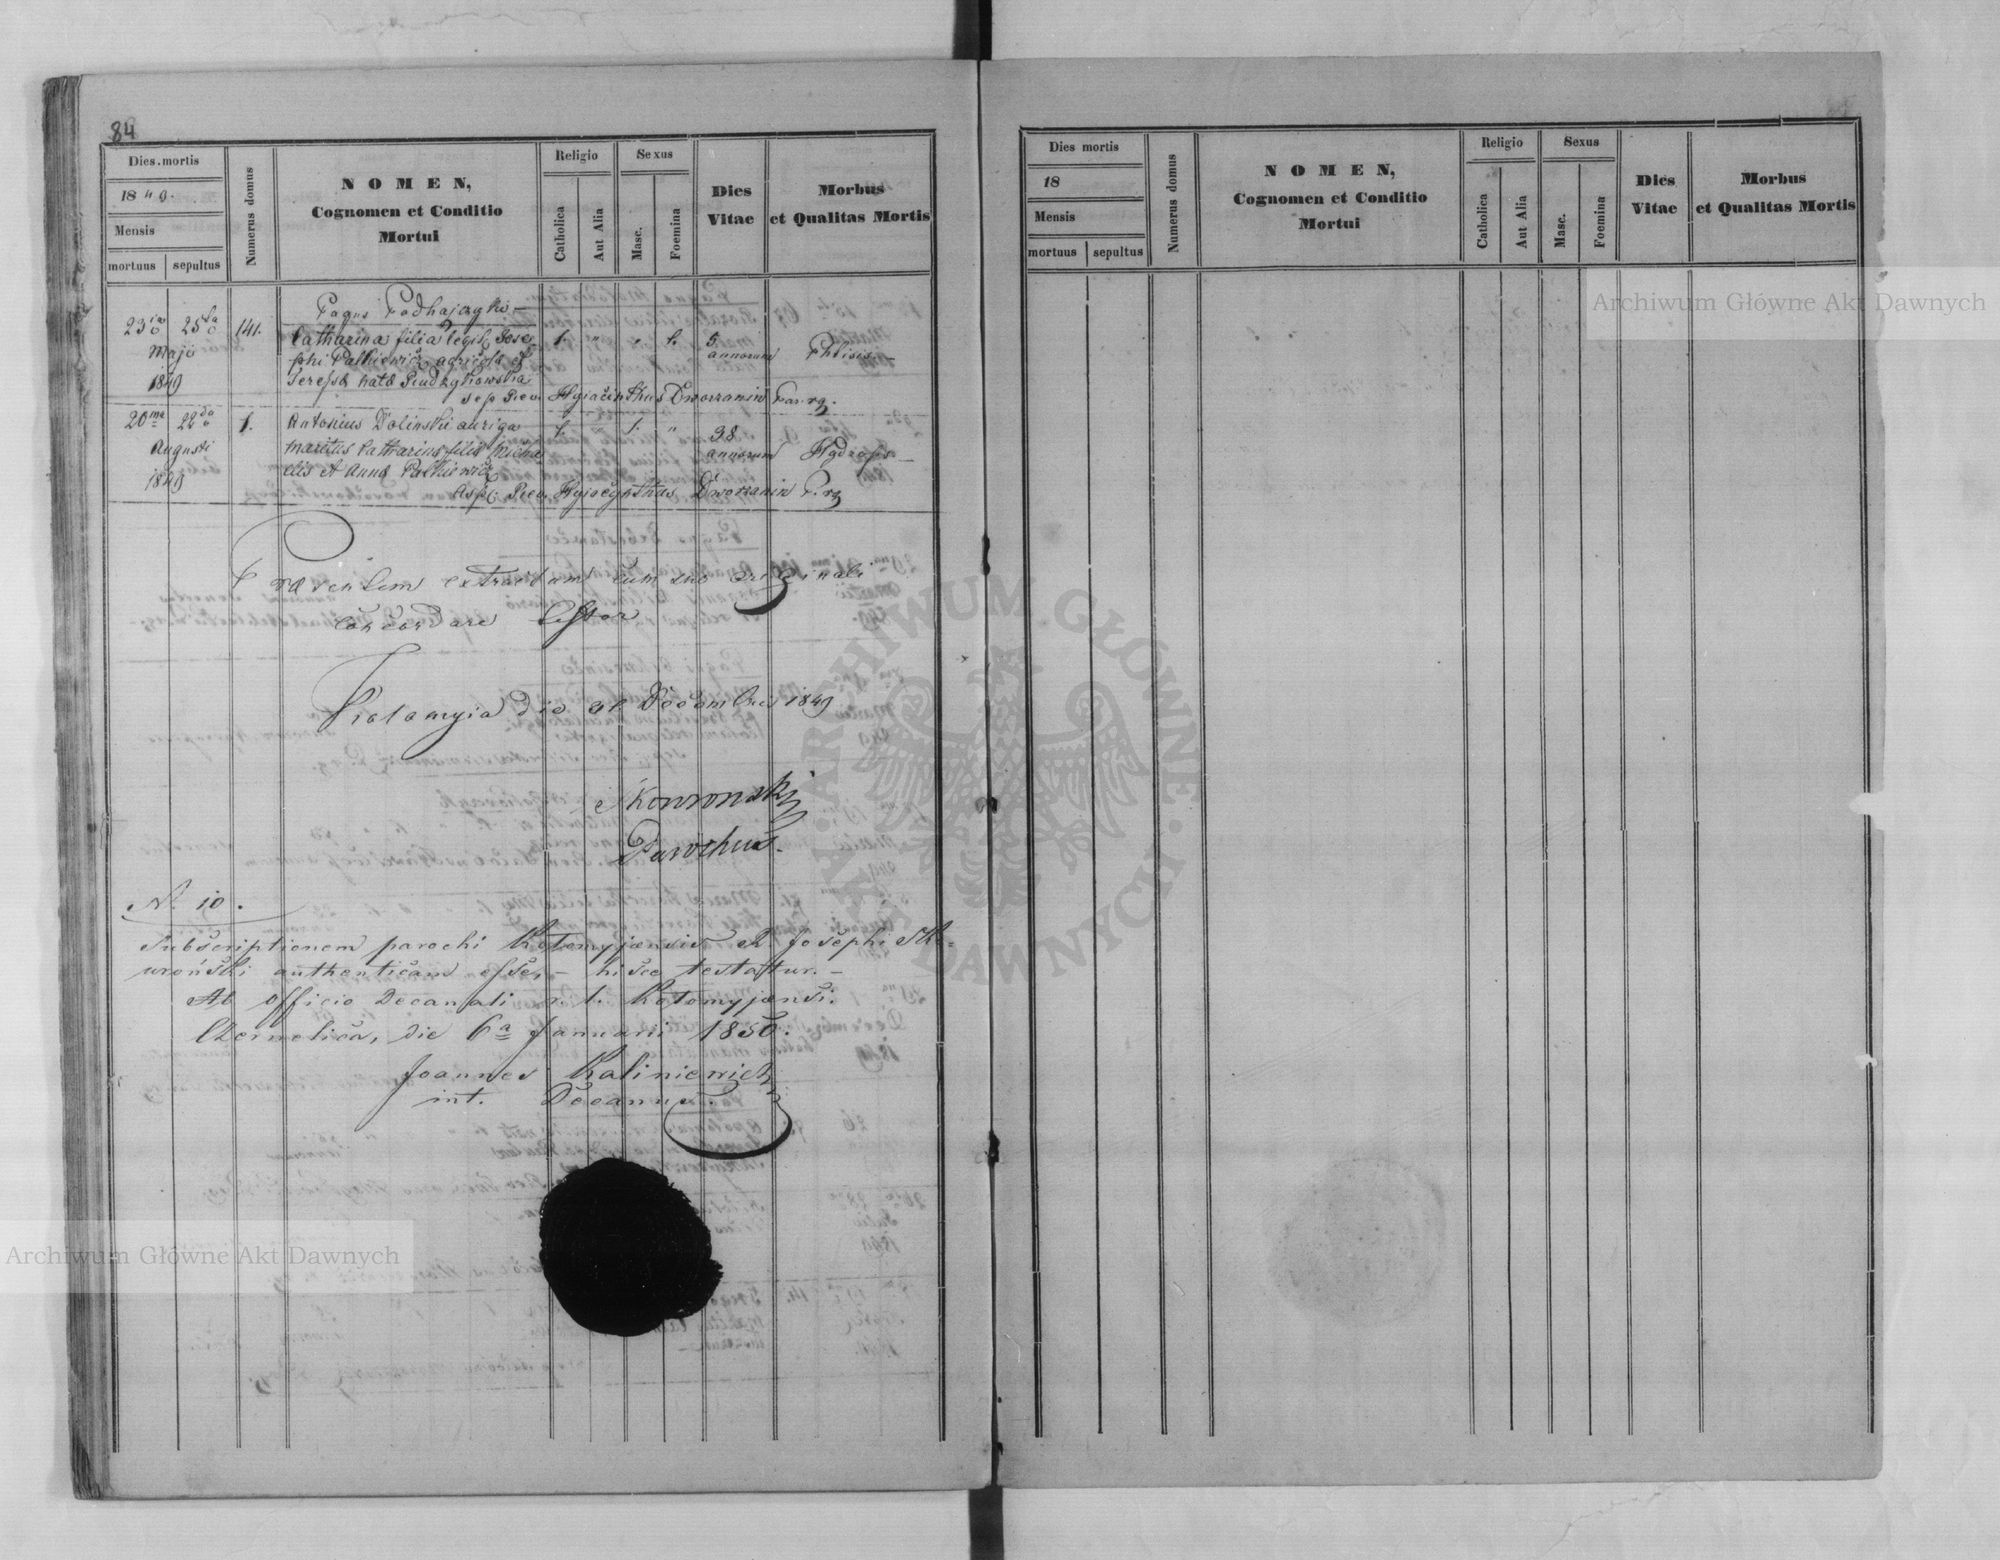 84
Dies mortis
1849.
Mensis
mortuus sepultus
Numerus domus
NOMEN,
Cognomen et Conditio
Mortui
Religio
Catholica
Aut Alia
Sexus
Masc.
Foemina
Dies
Vitae
Morbus
et Qualitas Mortis
Pagus Podhajczyki
23 25 Maji 1849
141.
Catharina filia legit. Jose-
phi Palkiewicz agricolae et
Teressae natae
1. " " 1.
5 annorum
Phtisis
sep Rev. Hyiacinthus Dworzanin Par. rg.
20 22 Augusti 1849
1.
Antonius Dolinski auriga
maritus Catharinae filiae Micha
elis et Annae Palkiewicz
1. 1. "
38 annorum
Hydrops
Rev. Hyiacynthus Dworzanin P. rg
Praesentem extractum cum suo originali
concordare testor
Kolomyia die 31 Decembris 1849
Skowronski
Parochus.
N. 10.
Subscriptionem parochi Kołomyjensis R Josephi Sko-
wroński authenticam esse, – hisce testatur. –
Ab officio Decanali r. l. Kołomyjensi.
Czernelica, die 6a Januarii 1850.
Joannes Kaliniewicz
int. Decanus.
Dies mortis
18
Mensis
mortuus sepultus
Numerus domus
NOMEN,
Cognomen et Conditio
Mortui
Religio
Catholica
Aut Alia
Sexus
Masc.
Foemina
Dies
Vitae
Morbus
et Qualitas Mortis
Archiwum Główne Akt Dawnych
ARCHIWUM GŁÓWNE AKT DAWNYCH
Archiwum Główne Akt Dawnych